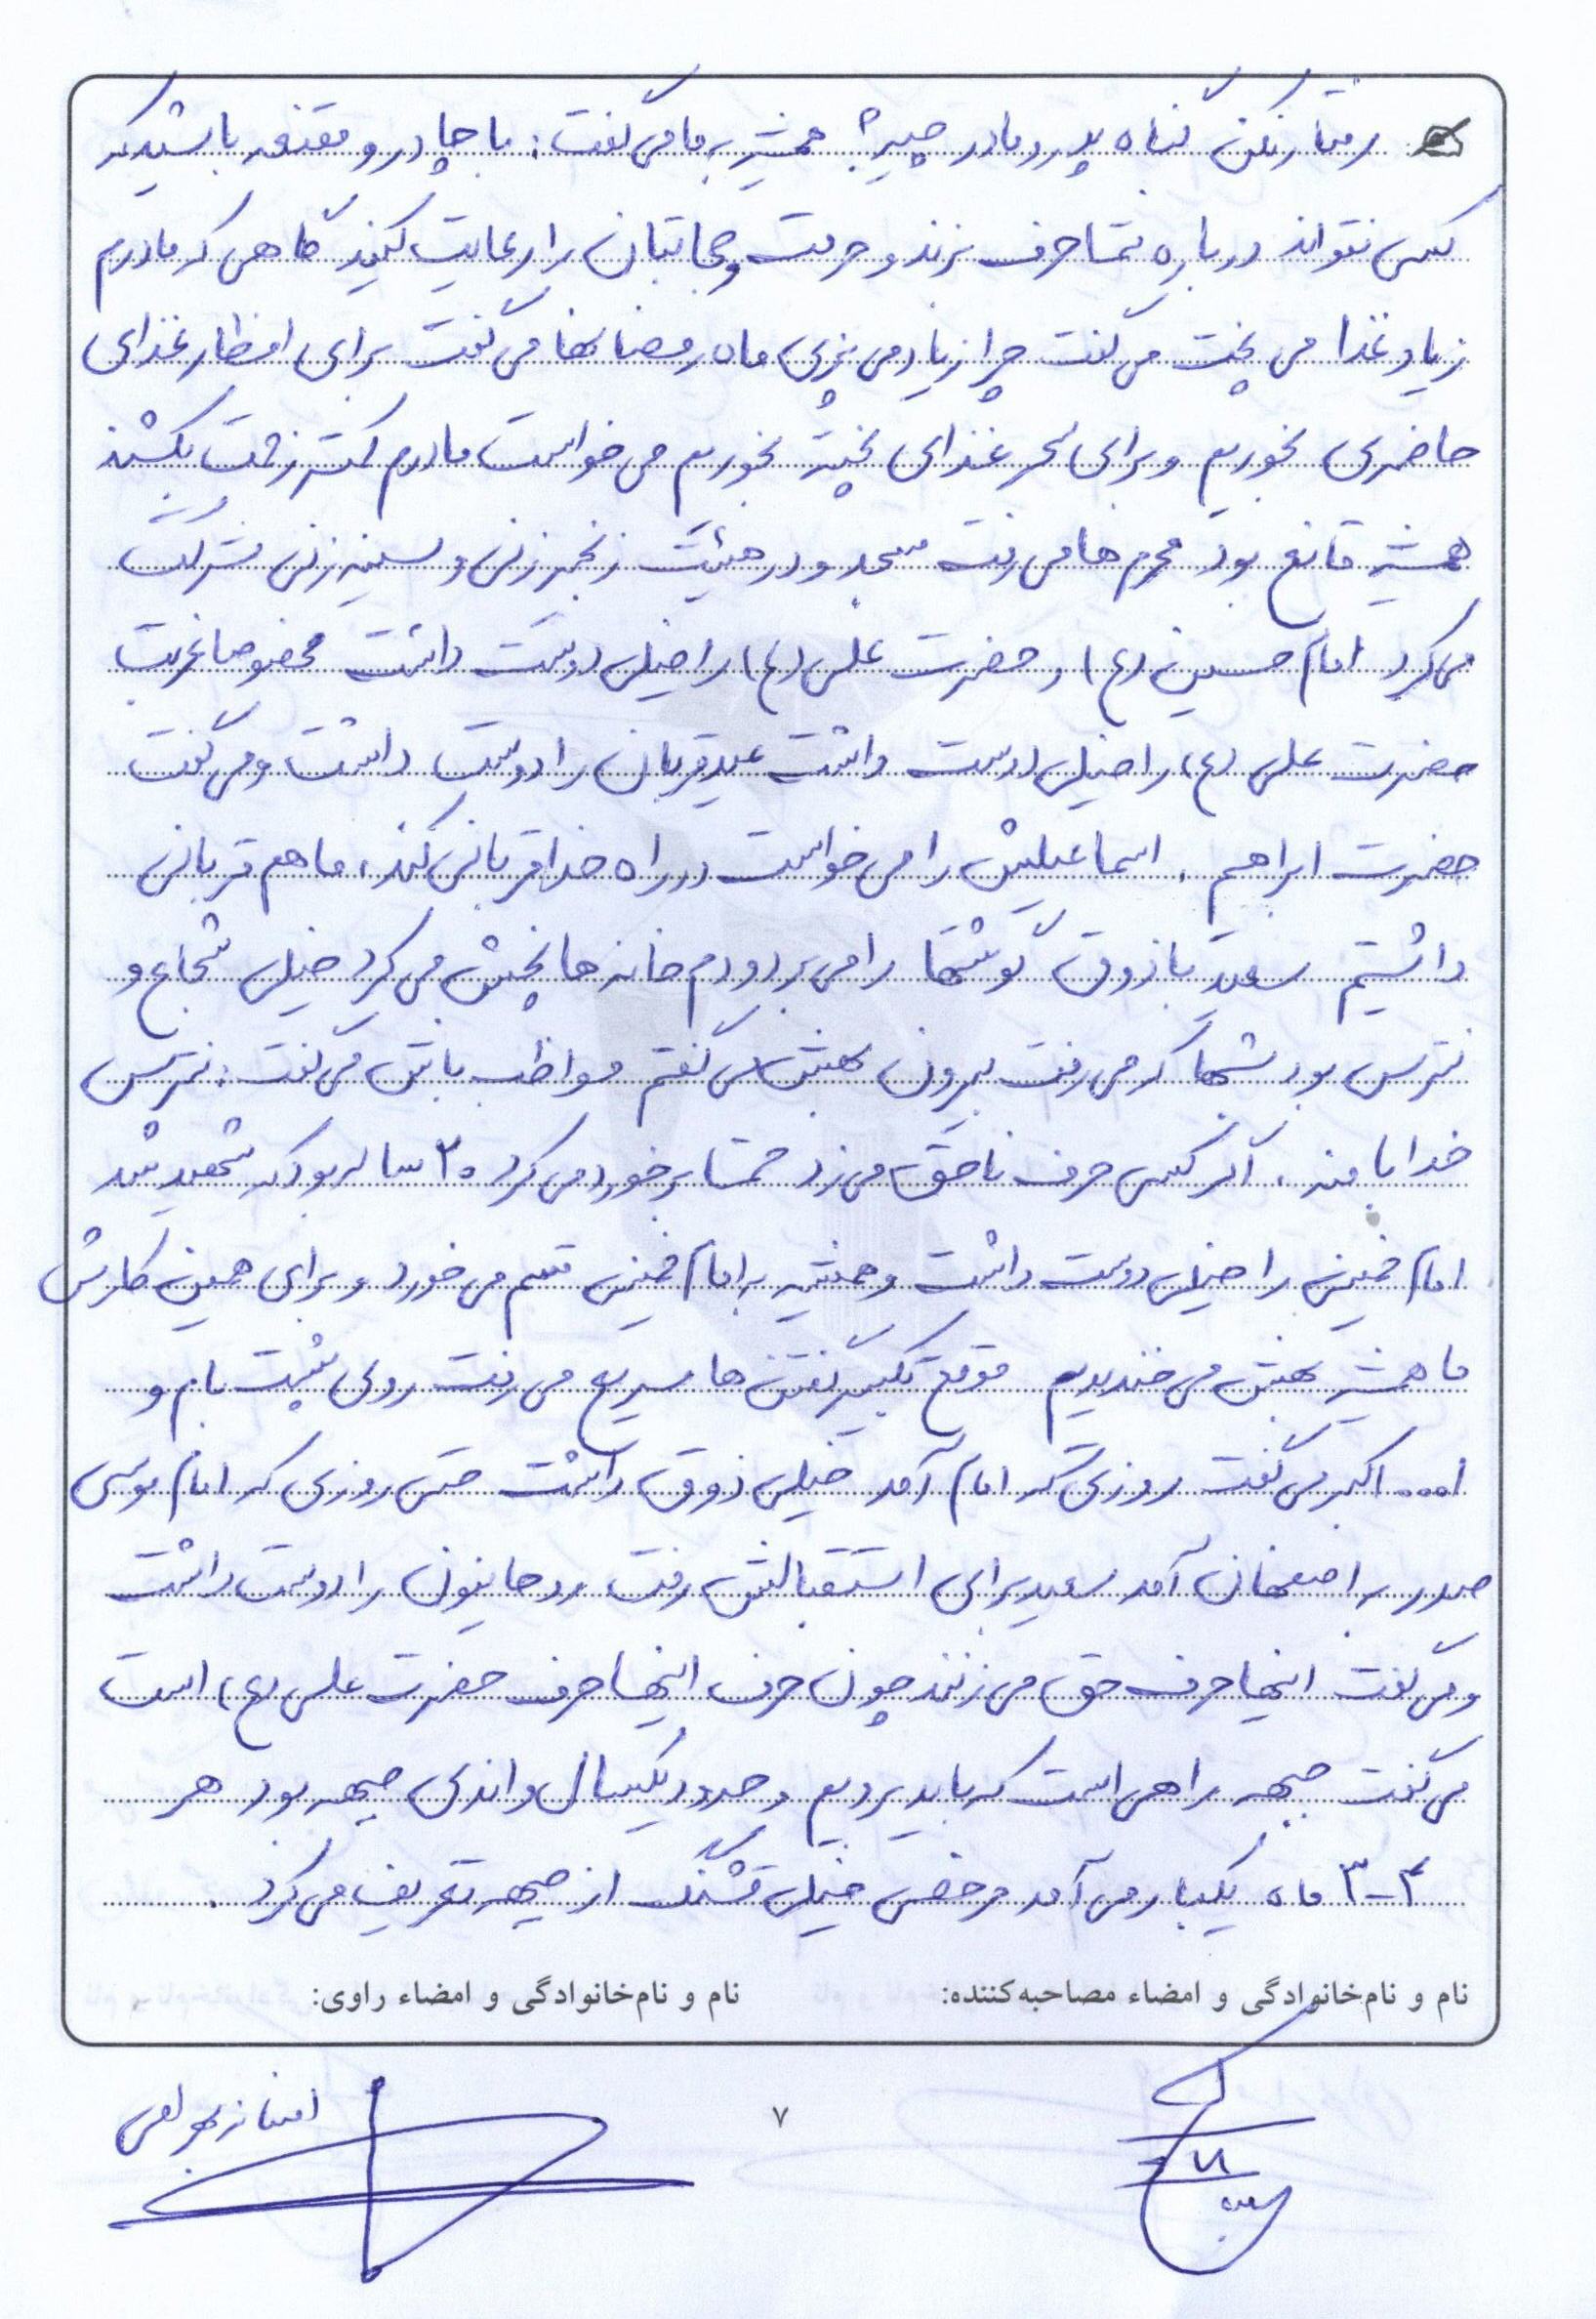 رفتار نکن گناه پدر و مادر چیه؟ همیشه به ما می گفت: با چادر و مقنعه باشید که
کسی نتواند درباره شما حرف بزند و حرمت و حجابتان را رعایت کنید گاهی که مادرم
زیاد غذا می پخت می گفت چرا زیاد می پزی ماه رمضانها می گفت برای افطار غذای
حاضری بخوریم و برای سحر غذای پخته بخوریم می خواست مادرم کمتر زحمت بکشند
همیشه قانع بود محرم ها می رفت مسجد و در هیئت زنجیرزنی و سینه زنی شرکت
می کرد امام حسین (ع) و حضرت علی (ع) را خیلی دوست داشت مخصوصا غربت
حضرت علی (ع) را خیلی دوست داشت عید قربان را دوست داشت و می گفت
حضرت ابراهیم، اسماعیلش را می خواست در راه خدا قربانی کند، ما هم قربانی
داشتیم سعید با ذوق گوشتها را می برد و درم خانه ها پخش می کرد خیلی شجاع و
نترس بود شبها که می رفت بیرون بهش می گفتم مواظب باش می گفت: نترس
خدا با منه، اگر کسی حرف ناحق می زد حتما برخورد می کرد ۲۰ ساله بود که شهید شد
امام خمینی را خیلی دوست داشت و همیشه به امام خمینی قسم می خورد و برای همین کارش
ما همیشه بهش می خندیدیم موقع تکبیر گفتن ها سریع می رفت روی پشت بام و
ا... اکبر می گفت روزی که امام آمد خیلی ذوق داشت حتی روزی که امام موسی
صدر به اصفهان آمد سعید برای استقبالش رفت روحانیون را دوست داشت
و می گفت اینها حرف حق می زنند چون حرف اینها حرف حضرت علی (ع) است
می گفت جبهه راهی است که باید برویم و حدود یکسال و اندی جبهه بود هر
۳-۴ ماه یکبار می آمد مرخصی خیلی قشنگ از جبهه تعریف می کرد.
نام و نام‌خانوادگی و امضاء مصاحبه‌کننده: نام و نام‌خانوادگی و امضاء راوی:
۷